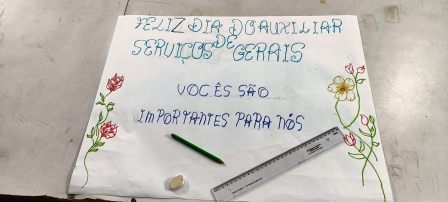 FELIZ DIA DO AUXILIAR
DE
SERVIÇOS GERAIS
VOCÊS SÃO
IMPORTANTES PARA NÓS